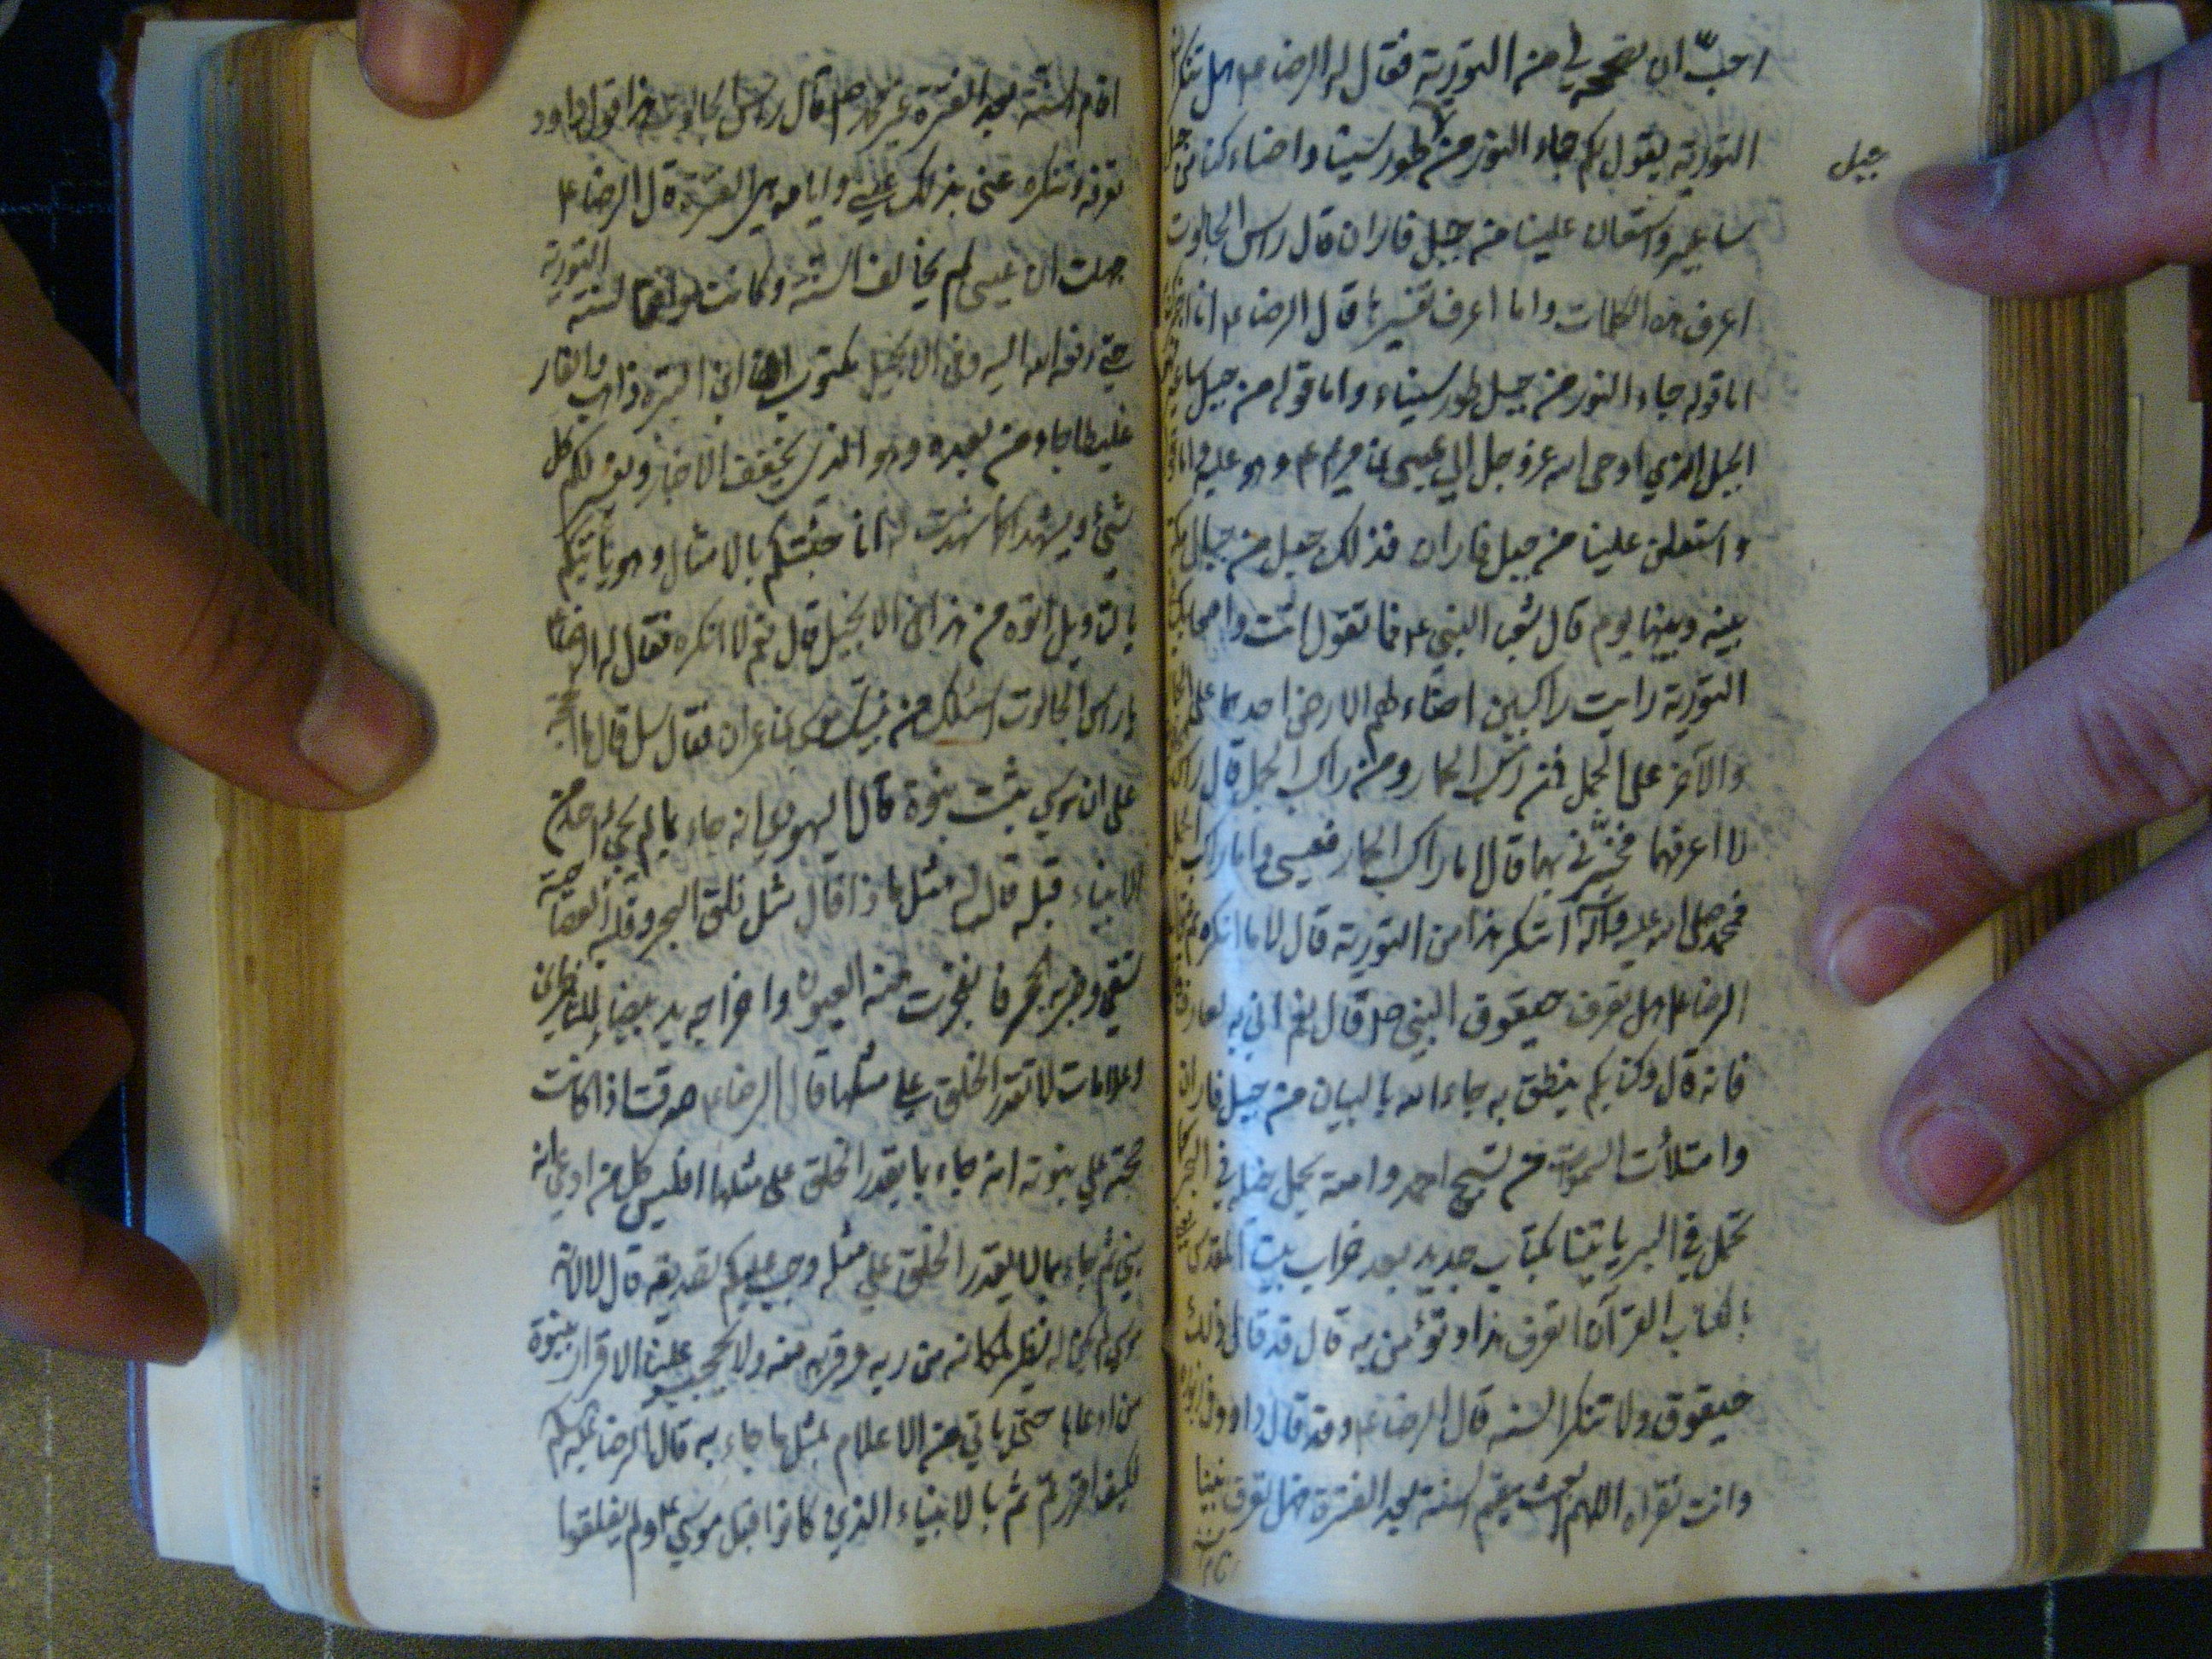 احبّ ان تصححه لي من التورية فقال له الرضا ء هل تنكر
التورية يقول لكم جاء النور من طور سيناء واضاء
جبل
ساعير واستعان علينا من جبل فاران قال راس الجالوت
اعرف هذه الكلمات وما اعرف تفسيرها قال الرضا ء انا
اما قوله جاء النور من جبل طور سيناء واما قوله من جبل
الجبل الذي اوحى الله عز وجل الى عيسى بن مريم ء وهو عليه واما
واستعلن علينا من جبل فاران فذلك جبل من جبال
بينه وبينها يوم قال شعيا النبي ء فيما تقول انت واصحابك
التورية رايت راكبين اضاء لهم الارض احدهما على
والآخر على الجمل فمن راكب الحمار ومن راكب الجمل قال راس
لا اعرفهما فخبرني بهما قال اما راكب الحمار فعيسى واما راكب
فمحمد صلى الله عليه وآله اتنكر هذا من التورية قال لا ما انكره
الرضا ء هل تعرف حيقوق النبي صلى قال نعم اني به لعارف
فانه قال وكتابكم ينطق به جاء الله بالبيان من جبل فاران
وامتلأت السموات من تسبيح احمد وامته يحمل خيله في البحر
تحمل في البر ياتينا بكتاب جديد بعد خراب بيت المقدس
بالكتاب القرآن اتعرف هذا وتؤمن به قال قد قال ذلك
حيقوق ولا تنكر لسنه قال الرضا ء وقد قال داود في زبوره
وانت تقراه اللهم ابعث مقيم السنة بعد الفترة فهل تعرف نبينا
اقام السنة بعد الفترة غير محمد ص قال راس الجالوت هذا قول داود
نعرفه وننكره عنى بذلك عيسى وايامه هي الفترة قال الرضا ء
جهلت ان عيسى لم يخالف السنة وكانت موافقا لسنة التورية
حتى رفعه الله اليه وفي الانجيل مكتوب ان ابن البرة ذاهب والفار
قليطا جاء من بعده وهو الذي يخفف الاصار ويفسر لكم كل
شيء ويشهد لي كما شهدت له انا جئتكم بالامثال وهو ياتيكم
بالتاويل اتؤمن بهذا في الانجيل قال نعم لا انكره فقال له الرضا ء
يا راس الجالوت اسئلك عن نبيك موسى بن عمران فقال سل قال ما الحجة
على ان موسى ثبت نبوة قال اليهودي انه جاء بما لم يجئ احد من
الانبياء قبله قال له مثل ماذا قال مثل فلق البحر وقلبه العصا حية
تسعى وضربه الحجر فانفجرت منه العيون واخراجه يده بيضاء للناظرين
وعلامات لا تقدر الخلق على مثلها قال الرضا ء صدقت اذا كانت
حجته على نبوته انه جاء بما يقدر الخلق على مثلها افليس كل من ادعى انه
نبي ثم جاء بما لا يقدر الخلق على مثله وجب عليكم تصديقه قال لا لان
موسى لم يكن له نظير لمكانه من ربه وقربه منه ولا يجب علينا الاقرار بنبوة
من ادعاها حتى ياتي من الاعلام بمثل ما جاء به قال الرضا عليه السلم
فكيف اقررتم ثم بالانبياء الذين كانوا قبل موسى ء ولم يفلقوا